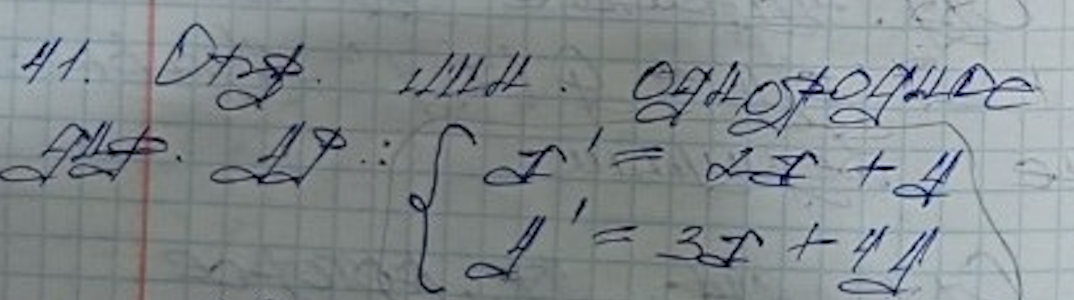 41. лин. однородные
диф. ур.: { x' = 2x + y
y' = 3x + 4y